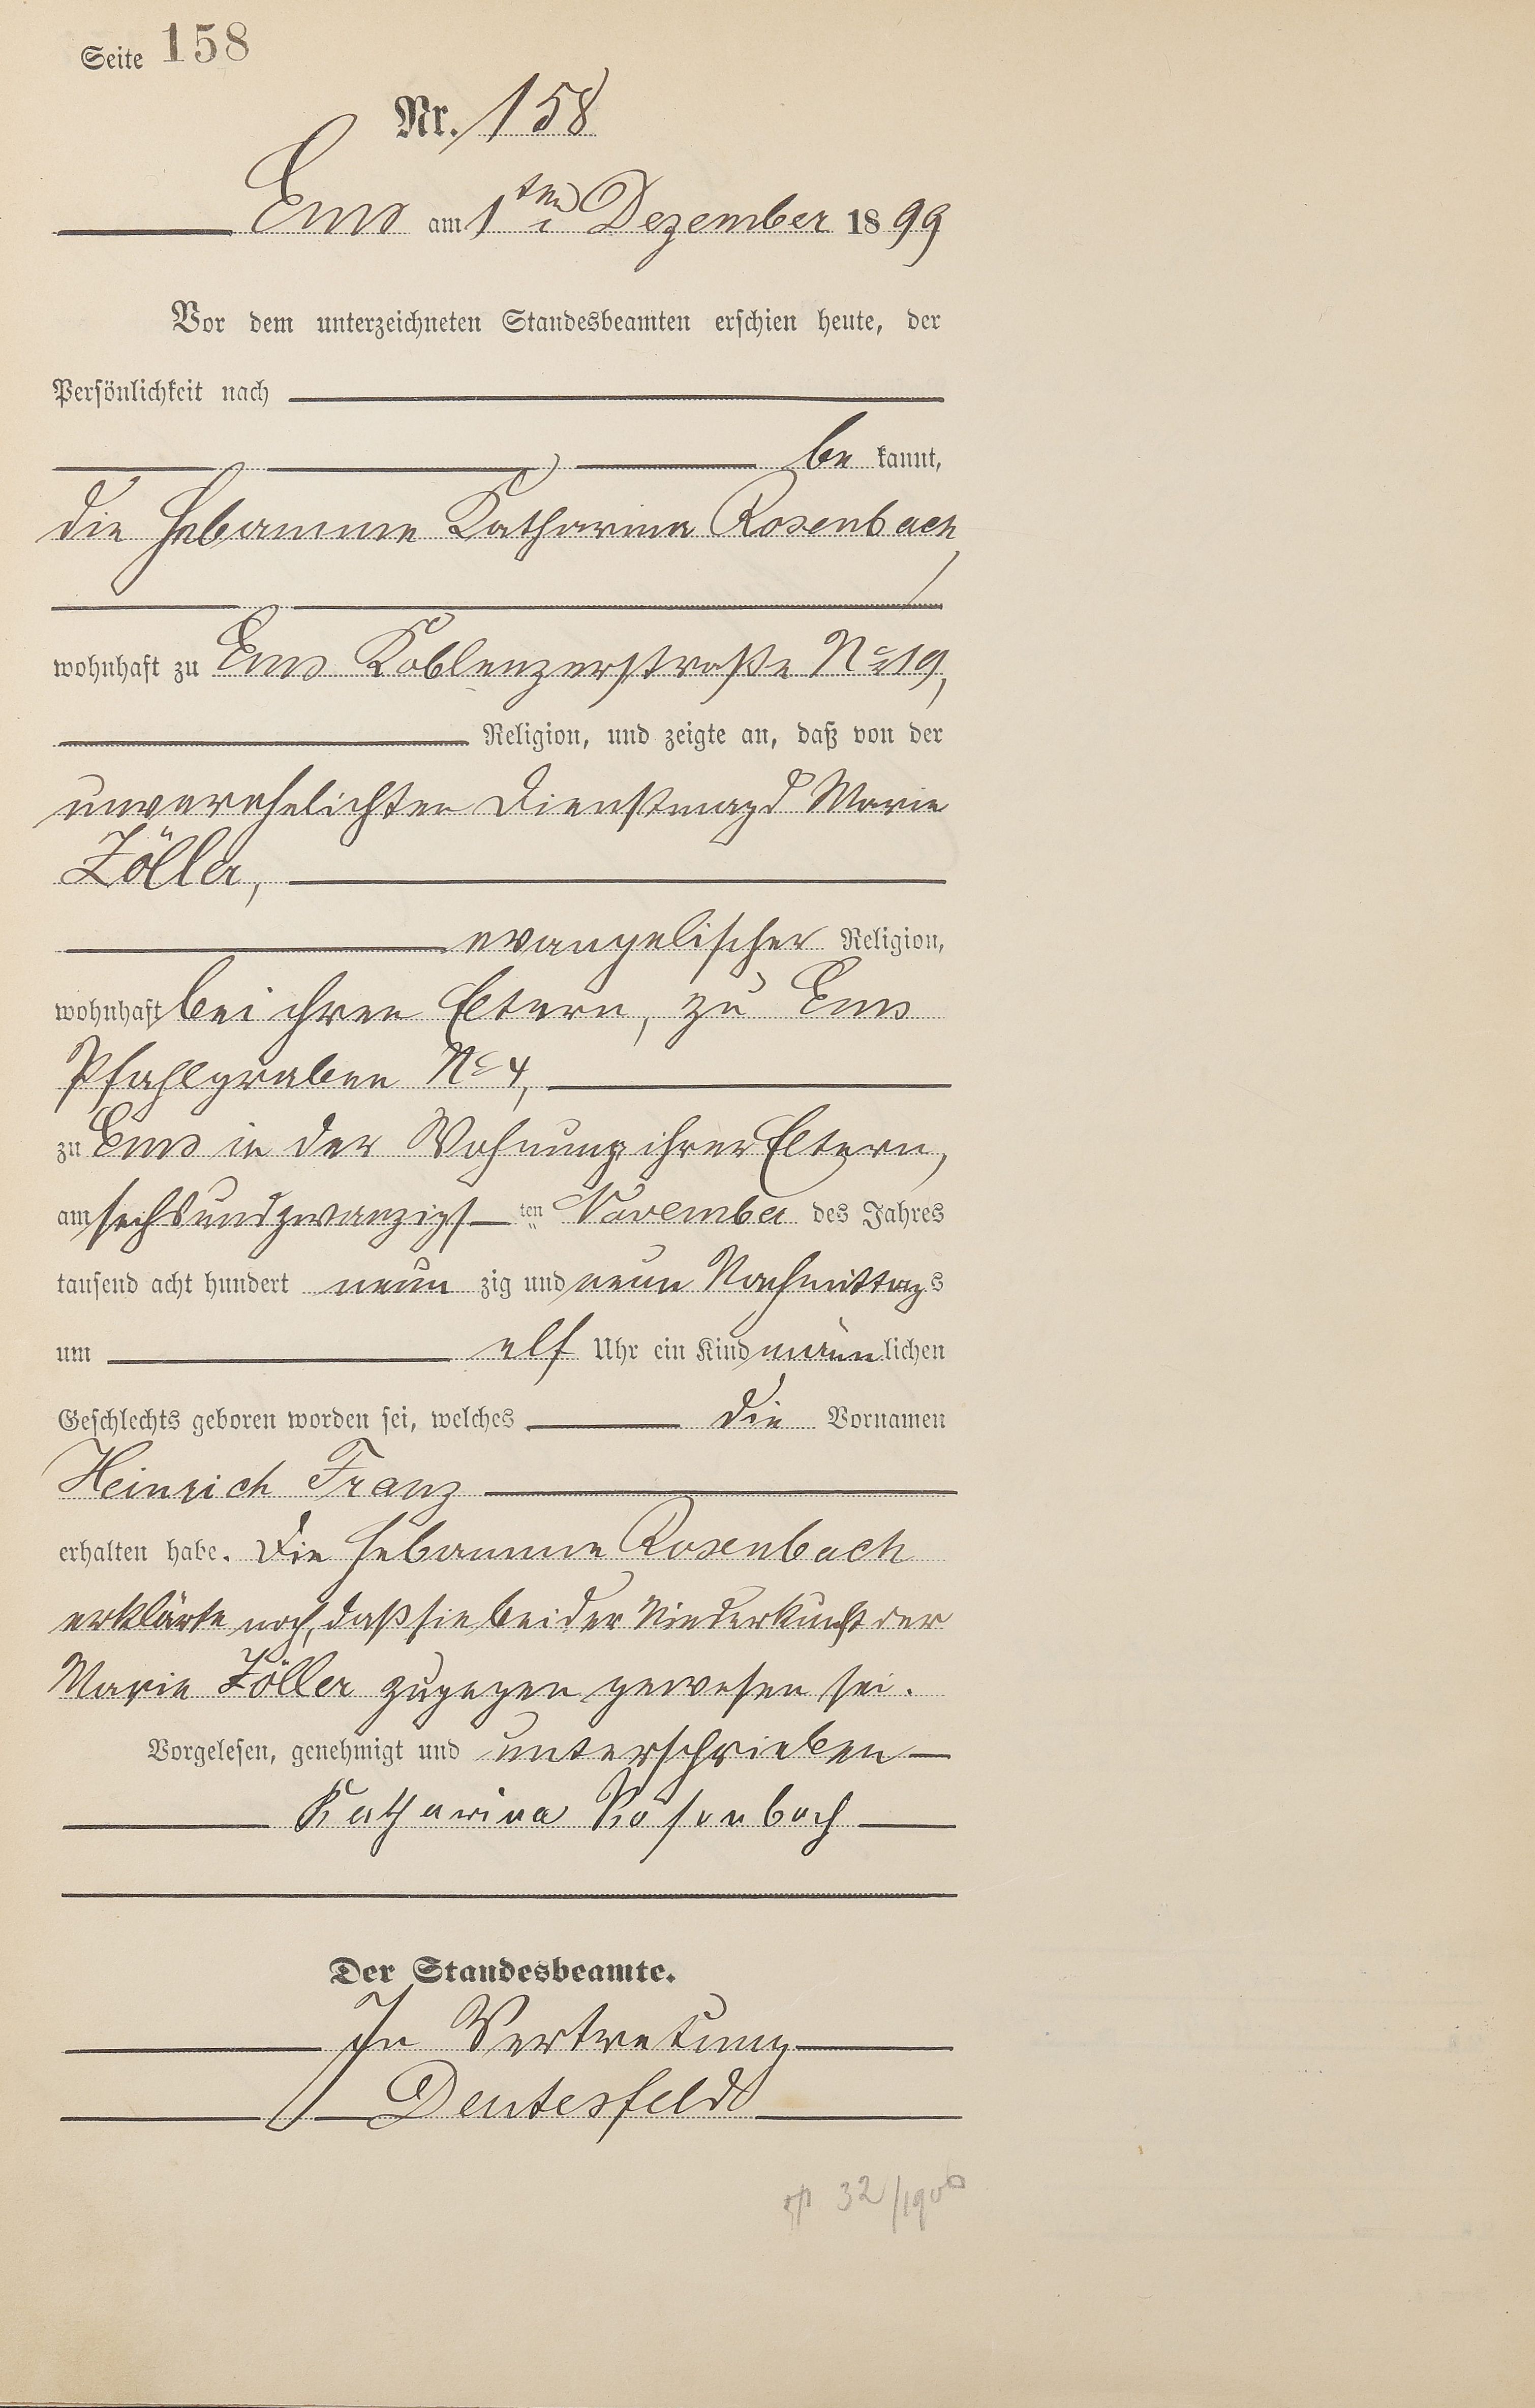 Seite 158
Nr. 158
Ems am 1ten Dezember 1899
Vor dem unterzeichneten Standesbeamten erschien heute, der
Persönlichkeit nach
be kannt,
die Hebamme Katharina Rosenbach
wohnhaft zu Ems Koblenzerstraße No 19,
Religion, und zeigte an, daß von der
unverehelichten Dienstmagd Marie
Zöller,
evangelischer Religion,
wohnhaft bei ihren Eltern, zu Ems
Pfahlgraben No 4,
zu Ems in der Wohnung ihrer Eltern,
am sechsundzwanzigsten November des Jahres
tausend acht hundert neunzig und neun Nachmittags
um elf Uhr ein Kind männlichen
Geschlechts geboren worden sei, welches die Vornamen
Heinrich Franz
erhalten habe. Die Hebamme Rosenbach
erklärte noch, daß sie bei der Niederkunft der
Marie Zöller zugegen gewesen sei.
Vorgelesen, genehmigt und unterschrieben
Katharina Rosenbach
Der Standesbeamte.
In Vertretung
Deutesfeld
32/1900